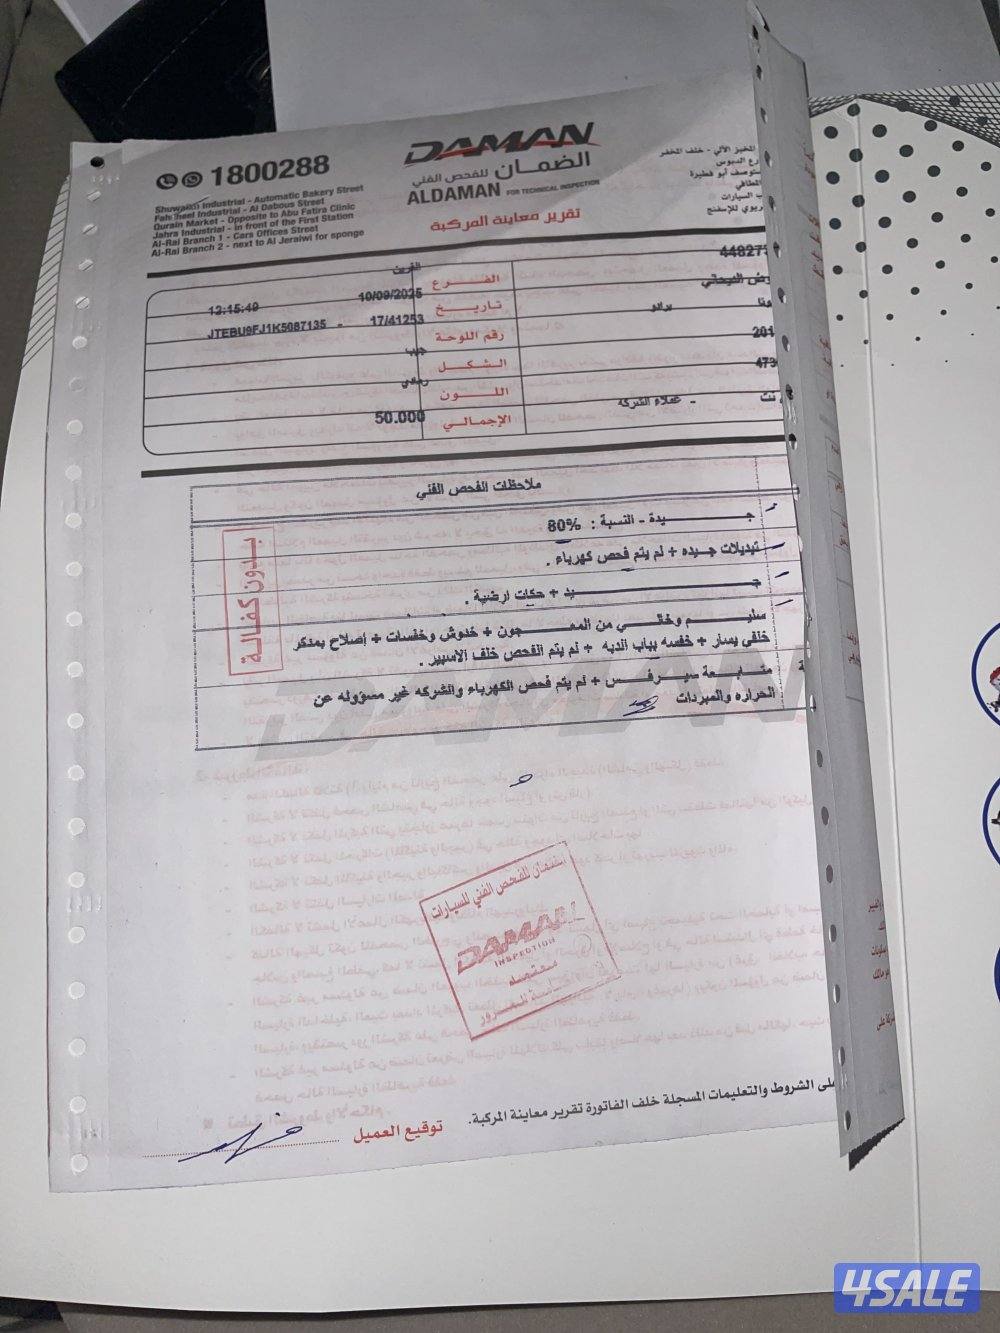 1800288
Shuwaikh Industrial - Automatic Bakery Street
Fahaheel Industrial - Al Dabous Street
Qurain Market - Opposite to Abu Fatira Clinic
Jahra Industrial - in front of the First Station
Al-Rai Branch 1 - Cars Offices Street
Al-Rai Branch 2 - next to Al Jeraiwi for sponge
DAMAN
الضمان للفحص الفني
ALDAMAN FOR TECHNICAL INSPECTION
تقرير معاينة المركبة
المخبز الآلي - خلف المخفر
رع الدبوس
ستوصف أبو فطيرة
المطافي
ب السيارات
ريوي للإسفنج
44827
الفرع
القرين
تاريخ
10/09/2025
12:15:49
برادو
رقم اللوحة
17/41253 - JTEBU9FJ1K5087135
201
الشكل
جيب
473
اللون
رصاصي
نت - عملاء الشركه
الإجمالي
50.000
ملاحظات الفحص الفني
جيدة - النسبة : 80%
تبديلات جيده + لم يتم فحص كهرباء .
جيد + حكات ارضية .
سليم وخالي من المعجون + خدوش وخفسات + إصلاح بمدكر
خلفي يسار + خفسه بباب الدبه + لم يتم الفحص خلف الاسبير .
متابعة سيرفس + لم يتم فحص الكهرباء والشركه غير مسؤوله عن
الحراره والمبردات
بدون كفالة
DAMAN
الضمان للفحص الفني للسيارات
DAMAN
INSPECTION
معتمد
لى الشروط والتعليمات المسجلة خلف الفاتورة تقرير معاينة المركبة.
توقيع العميل
4SALE